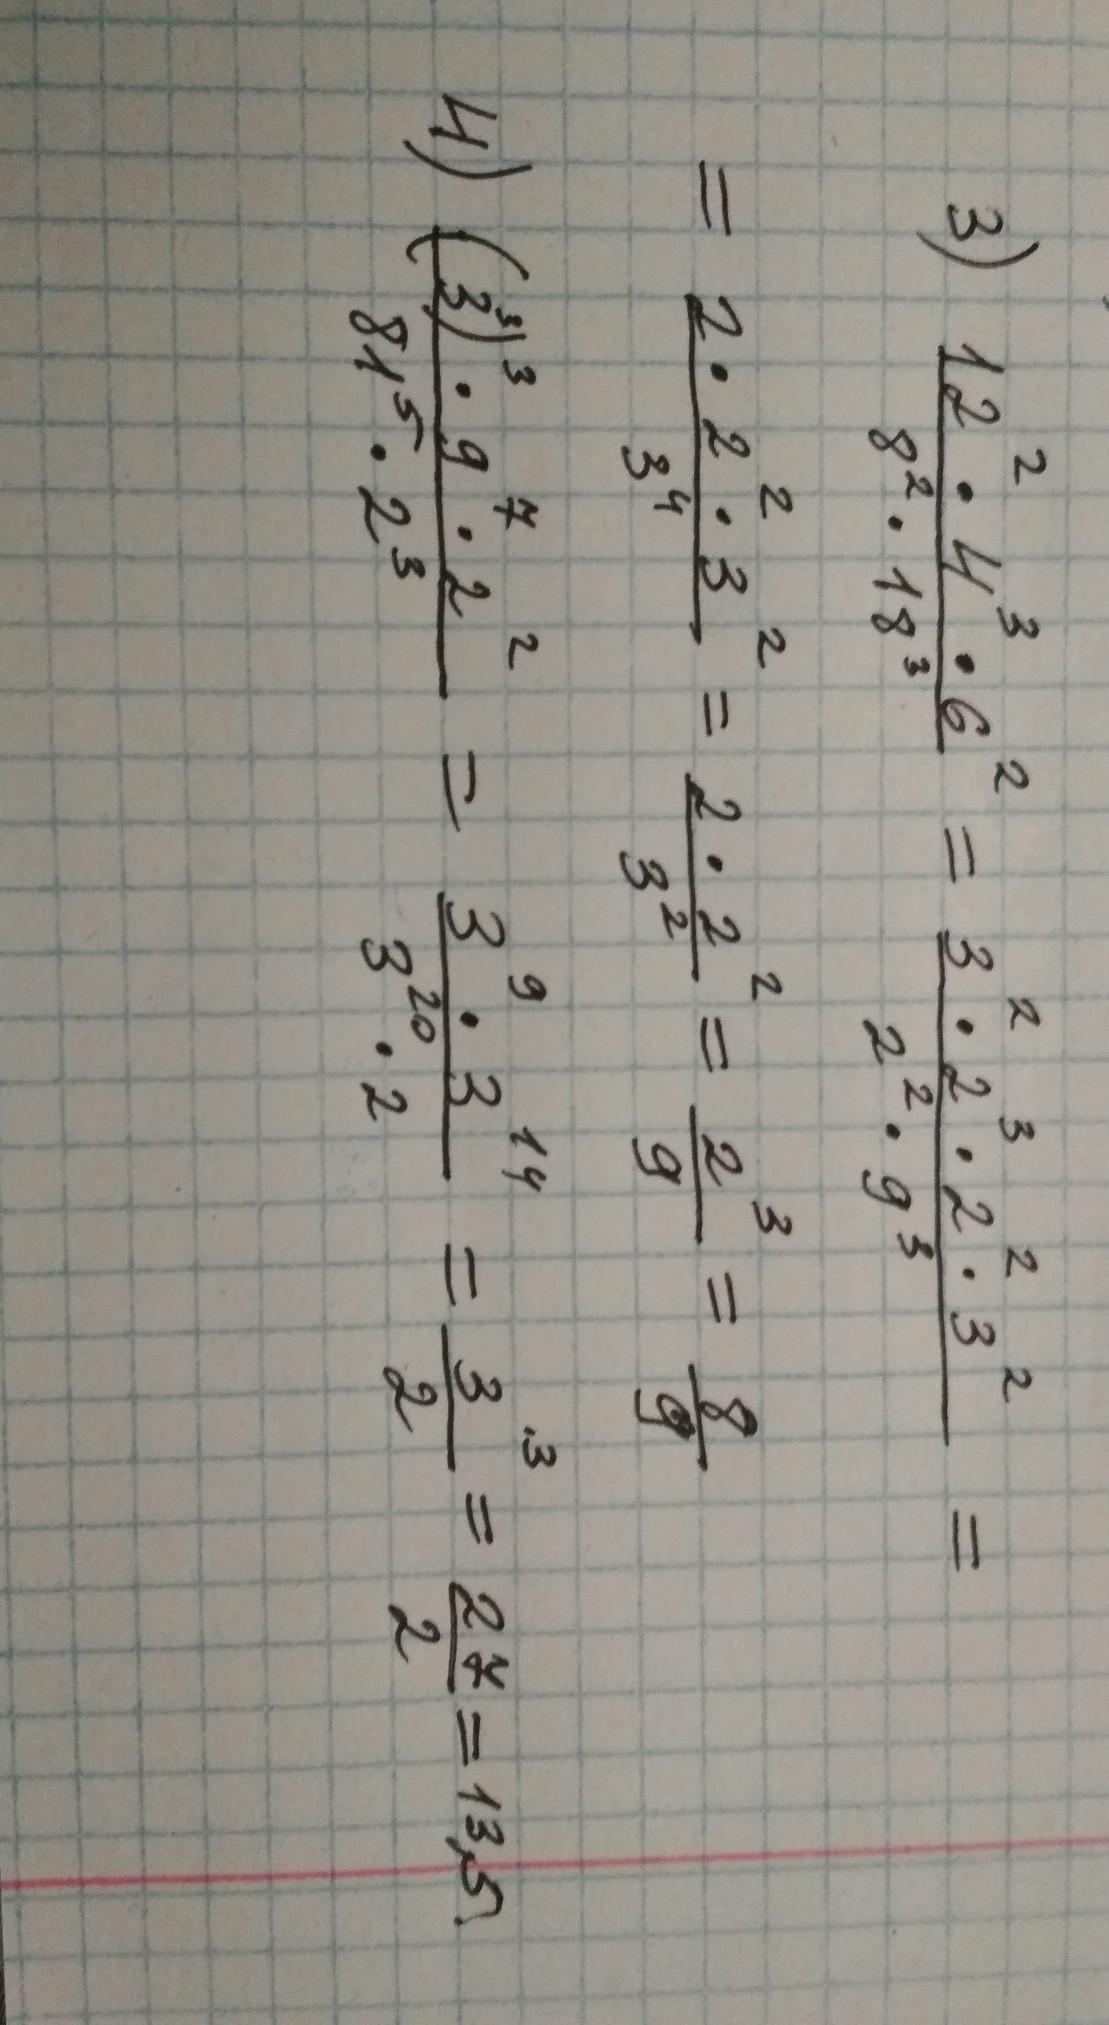 3) (12² · 4³ · 6²)/(8² · 18³) = (3² · 2³ · 2² · 3²)/(2² · 9³) =
= (2 · 2² · 3²)/3⁴ = (2 · 2²)/3² = 2³/9 = 8/9
4) ((3³)³ · 9⁷ · 2²)/(81⁵ · 2³) = (3⁹ · 3¹⁴)/(3²⁰ · 2) = 3³/2 = 27/2 = 13,5